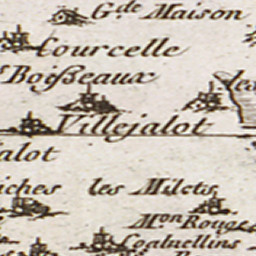 G.de Maison
Courcelle
Boisseaux
les
Villejalot
alot
iches les Milets
M.on Rouge
Coqluellins